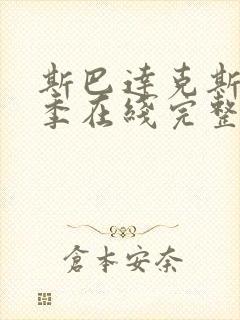 斯巴達克斯
季在綫完整
倉本安奈